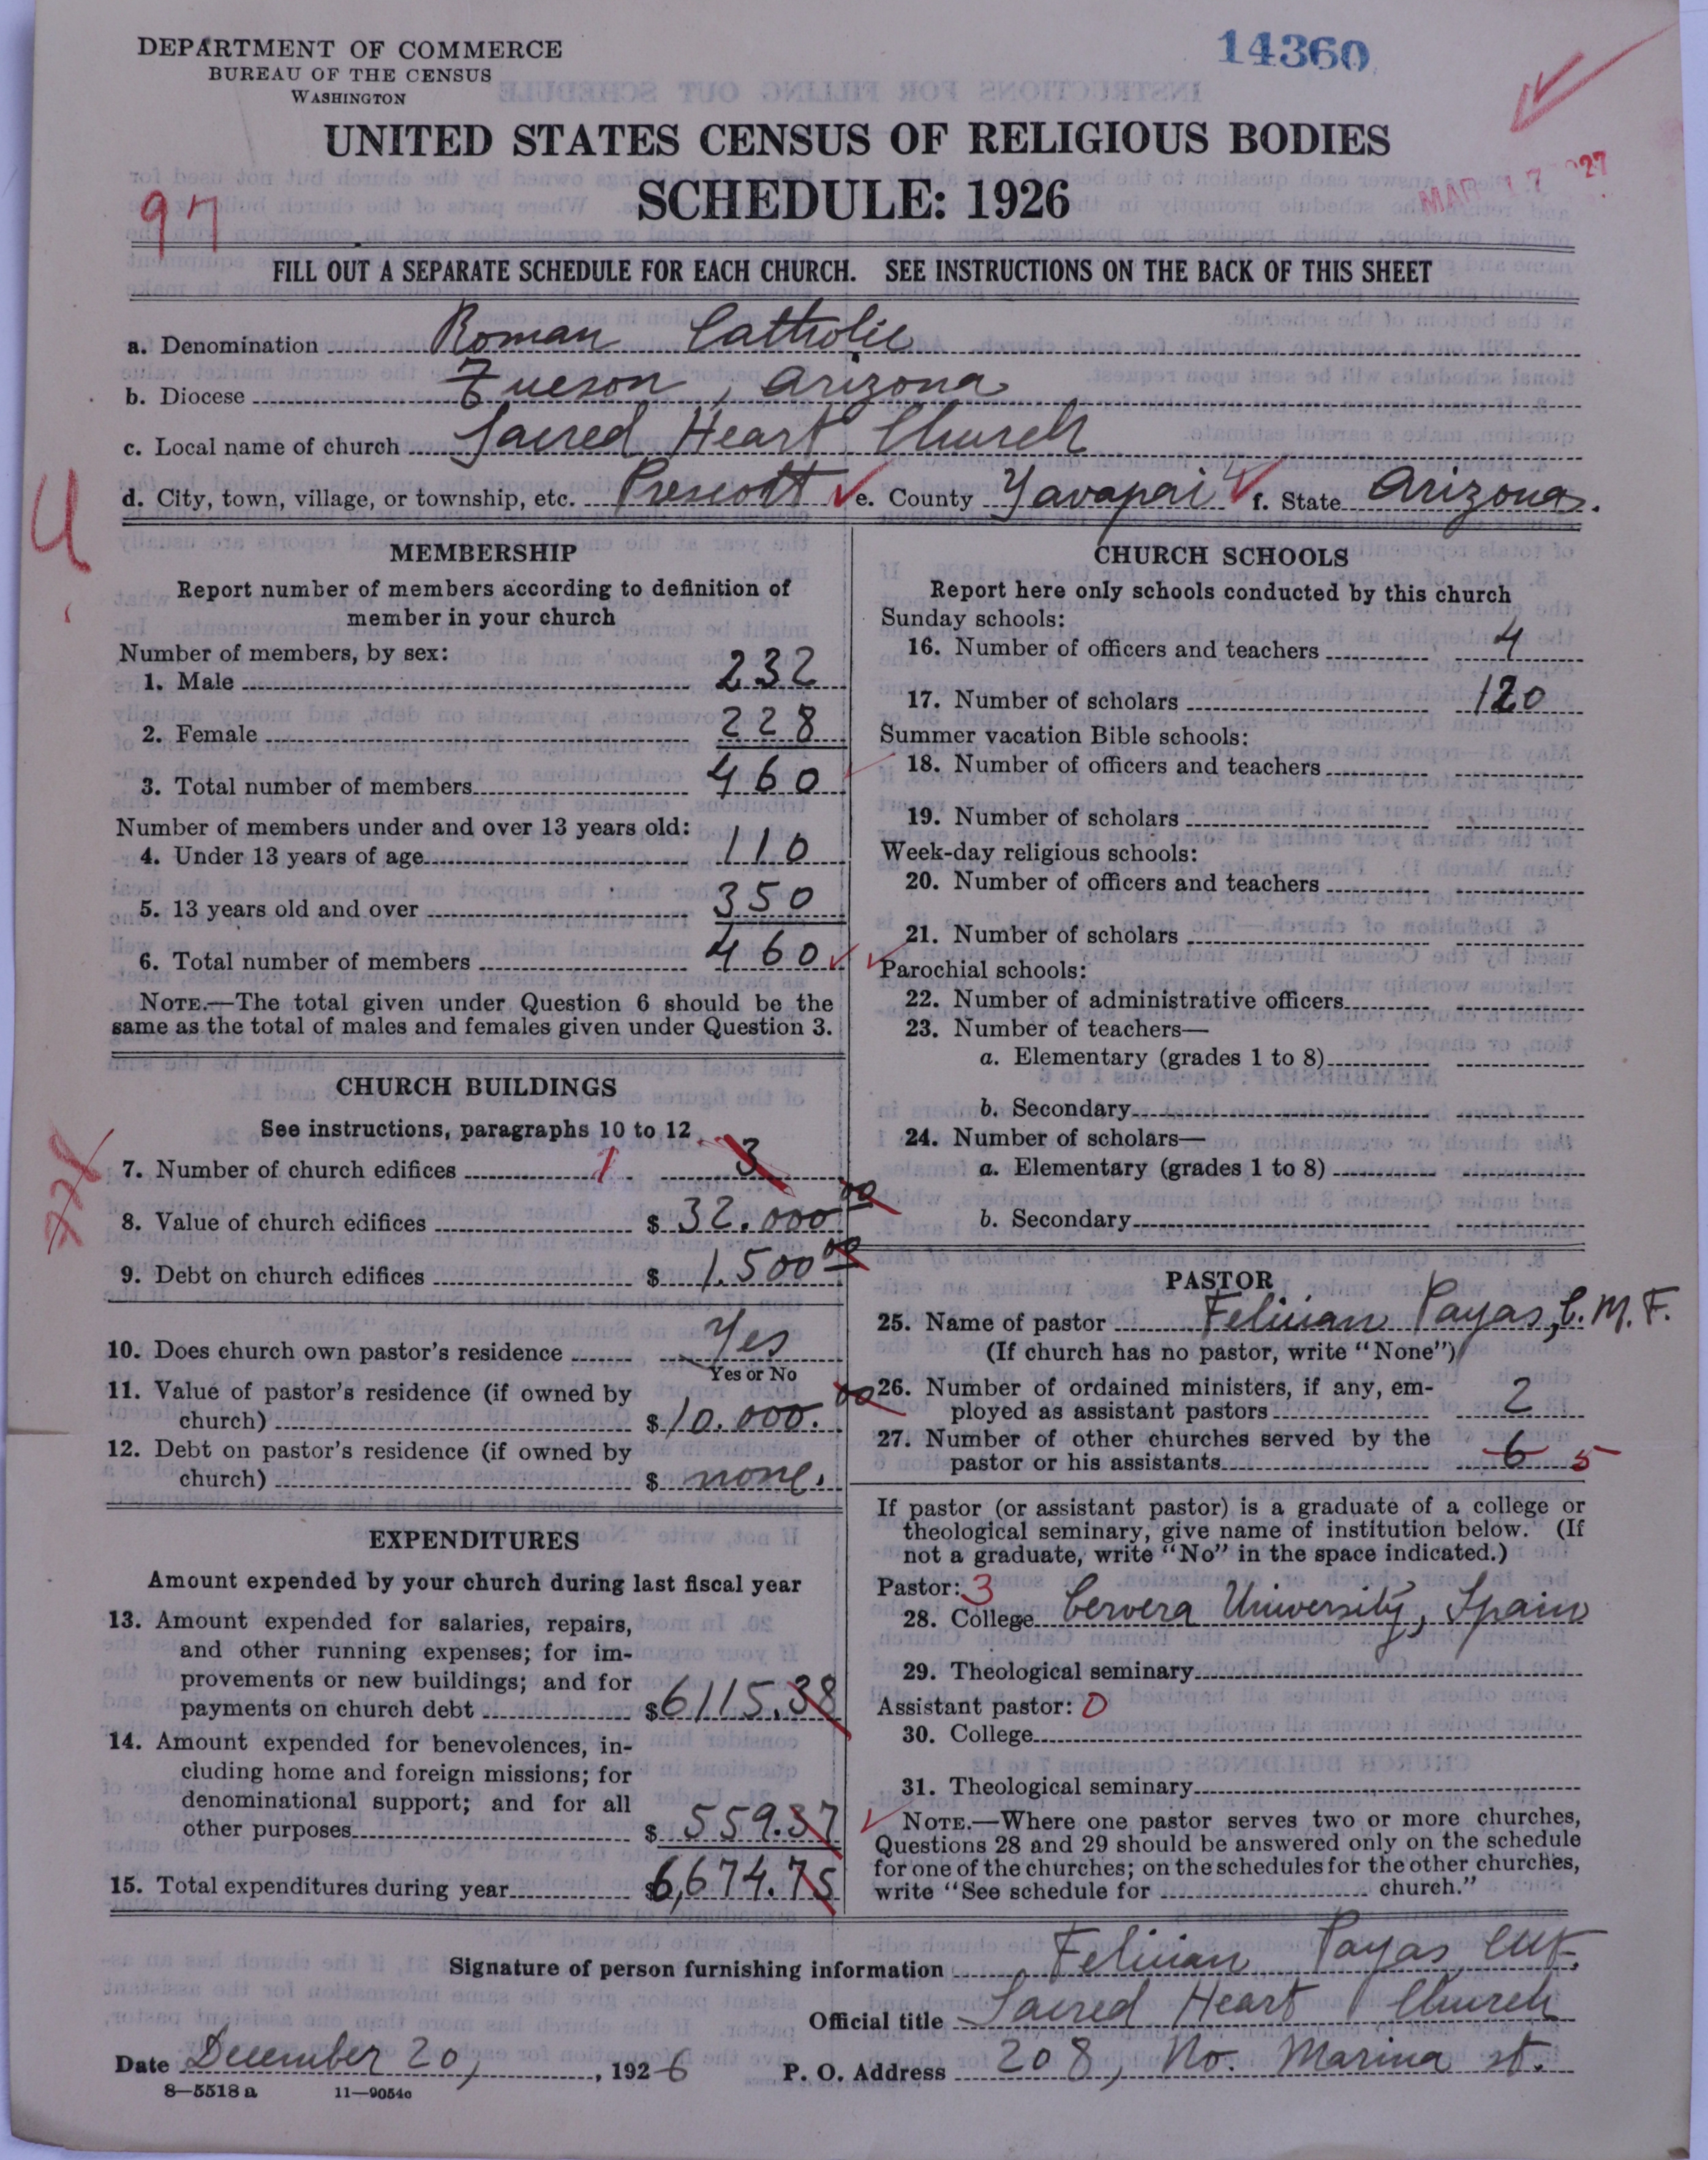 DEPARTMENT OF COMMERCE
BUREAU OF THE CENSUS
WASHINGTON
14360
UNITED STATES CENSUS OF RELIGIOUS BODIES
SCHEDULE: 1926
97
MAR 17 '27
FILL OUT A SEPARATE SCHEDULE FOR EACH CHURCH. SEE INSTRUCTIONS ON THE BACK OF THIS SHEET
a. Denomination Roman Catholic
b. Diocese Tucson, Arizona
c. Local name of church Sacred Heart Church
d. City, town, village, or township, etc. Prescott e. County Yavapai f. State Arizona.
U
MEMBERSHIP
Report number of members according to definition of
member in your church
Number of members, by sex:
1. Male 232
2. Female 228
3. Total number of members 460
Number of members under and over 13 years old:
4. Under 13 years of age 110
5. 13 years old and over 350
6. Total number of members 460
NOTE.—The total given under Question 6 should be the
same as the total of males and females given under Question 3.
CHURCH BUILDINGS
See instructions, paragraphs 10 to 12
7. Number of church edifices 1 3
8. Value of church edifices $ 32.000 00
9. Debt on church edifices $ 1.500 00
10. Does church own pastor's residence Yes
Yes or No
11. Value of pastor's residence (if owned by
church) $ 10.000. 00
12. Debt on pastor's residence (if owned by
church) $ none.
EXPENDITURES
Amount expended by your church during last fiscal year
13. Amount expended for salaries, repairs,
and other running expenses; for im-
provements or new buildings; and for
payments on church debt $ 6115.38
14. Amount expended for benevolences, in-
cluding home and foreign missions; for
denominational support; and for all
other purposes $ 559.37
15. Total expenditures during year $ 6,674.75
CHURCH SCHOOLS
Report here only schools conducted by this church
Sunday schools:
16. Number of officers and teachers 4
17. Number of scholars 120
Summer vacation Bible schools:
18. Number of officers and teachers
19. Number of scholars
Week-day religious schools:
20. Number of officers and teachers
21. Number of scholars
Parochial schools:
22. Number of administrative officers
23. Number of teachers—
a. Elementary (grades 1 to 8)
b. Secondary
24. Number of scholars—
a. Elementary (grades 1 to 8)
b. Secondary
PASTOR
25. Name of pastor Felician Payas, C.M.F.
(If church has no pastor, write "None")
26. Number of ordained ministers, if any, em-
ployed as assistant pastors 2
27. Number of other churches served by the
pastor or his assistants 6 5
If pastor (or assistant pastor) is a graduate of a college or
theological seminary, give name of institution below. (If
not a graduate, write "No" in the space indicated.)
Pastor: 3
28. College Cervera University, Spain
29. Theological seminary
Assistant pastor: 0
30. College
31. Theological seminary
NOTE.—Where one pastor serves two or more churches,
Questions 28 and 29 should be answered only on the schedule
for one of the churches; on the schedules for the other churches,
write "See schedule for church."
Signature of person furnishing information Felician Payas CMF.
Official title Sacred Heart Church
Date December 20, 1926 P. O. Address 208, No. Marina st.
8—5518 a 11—9054c